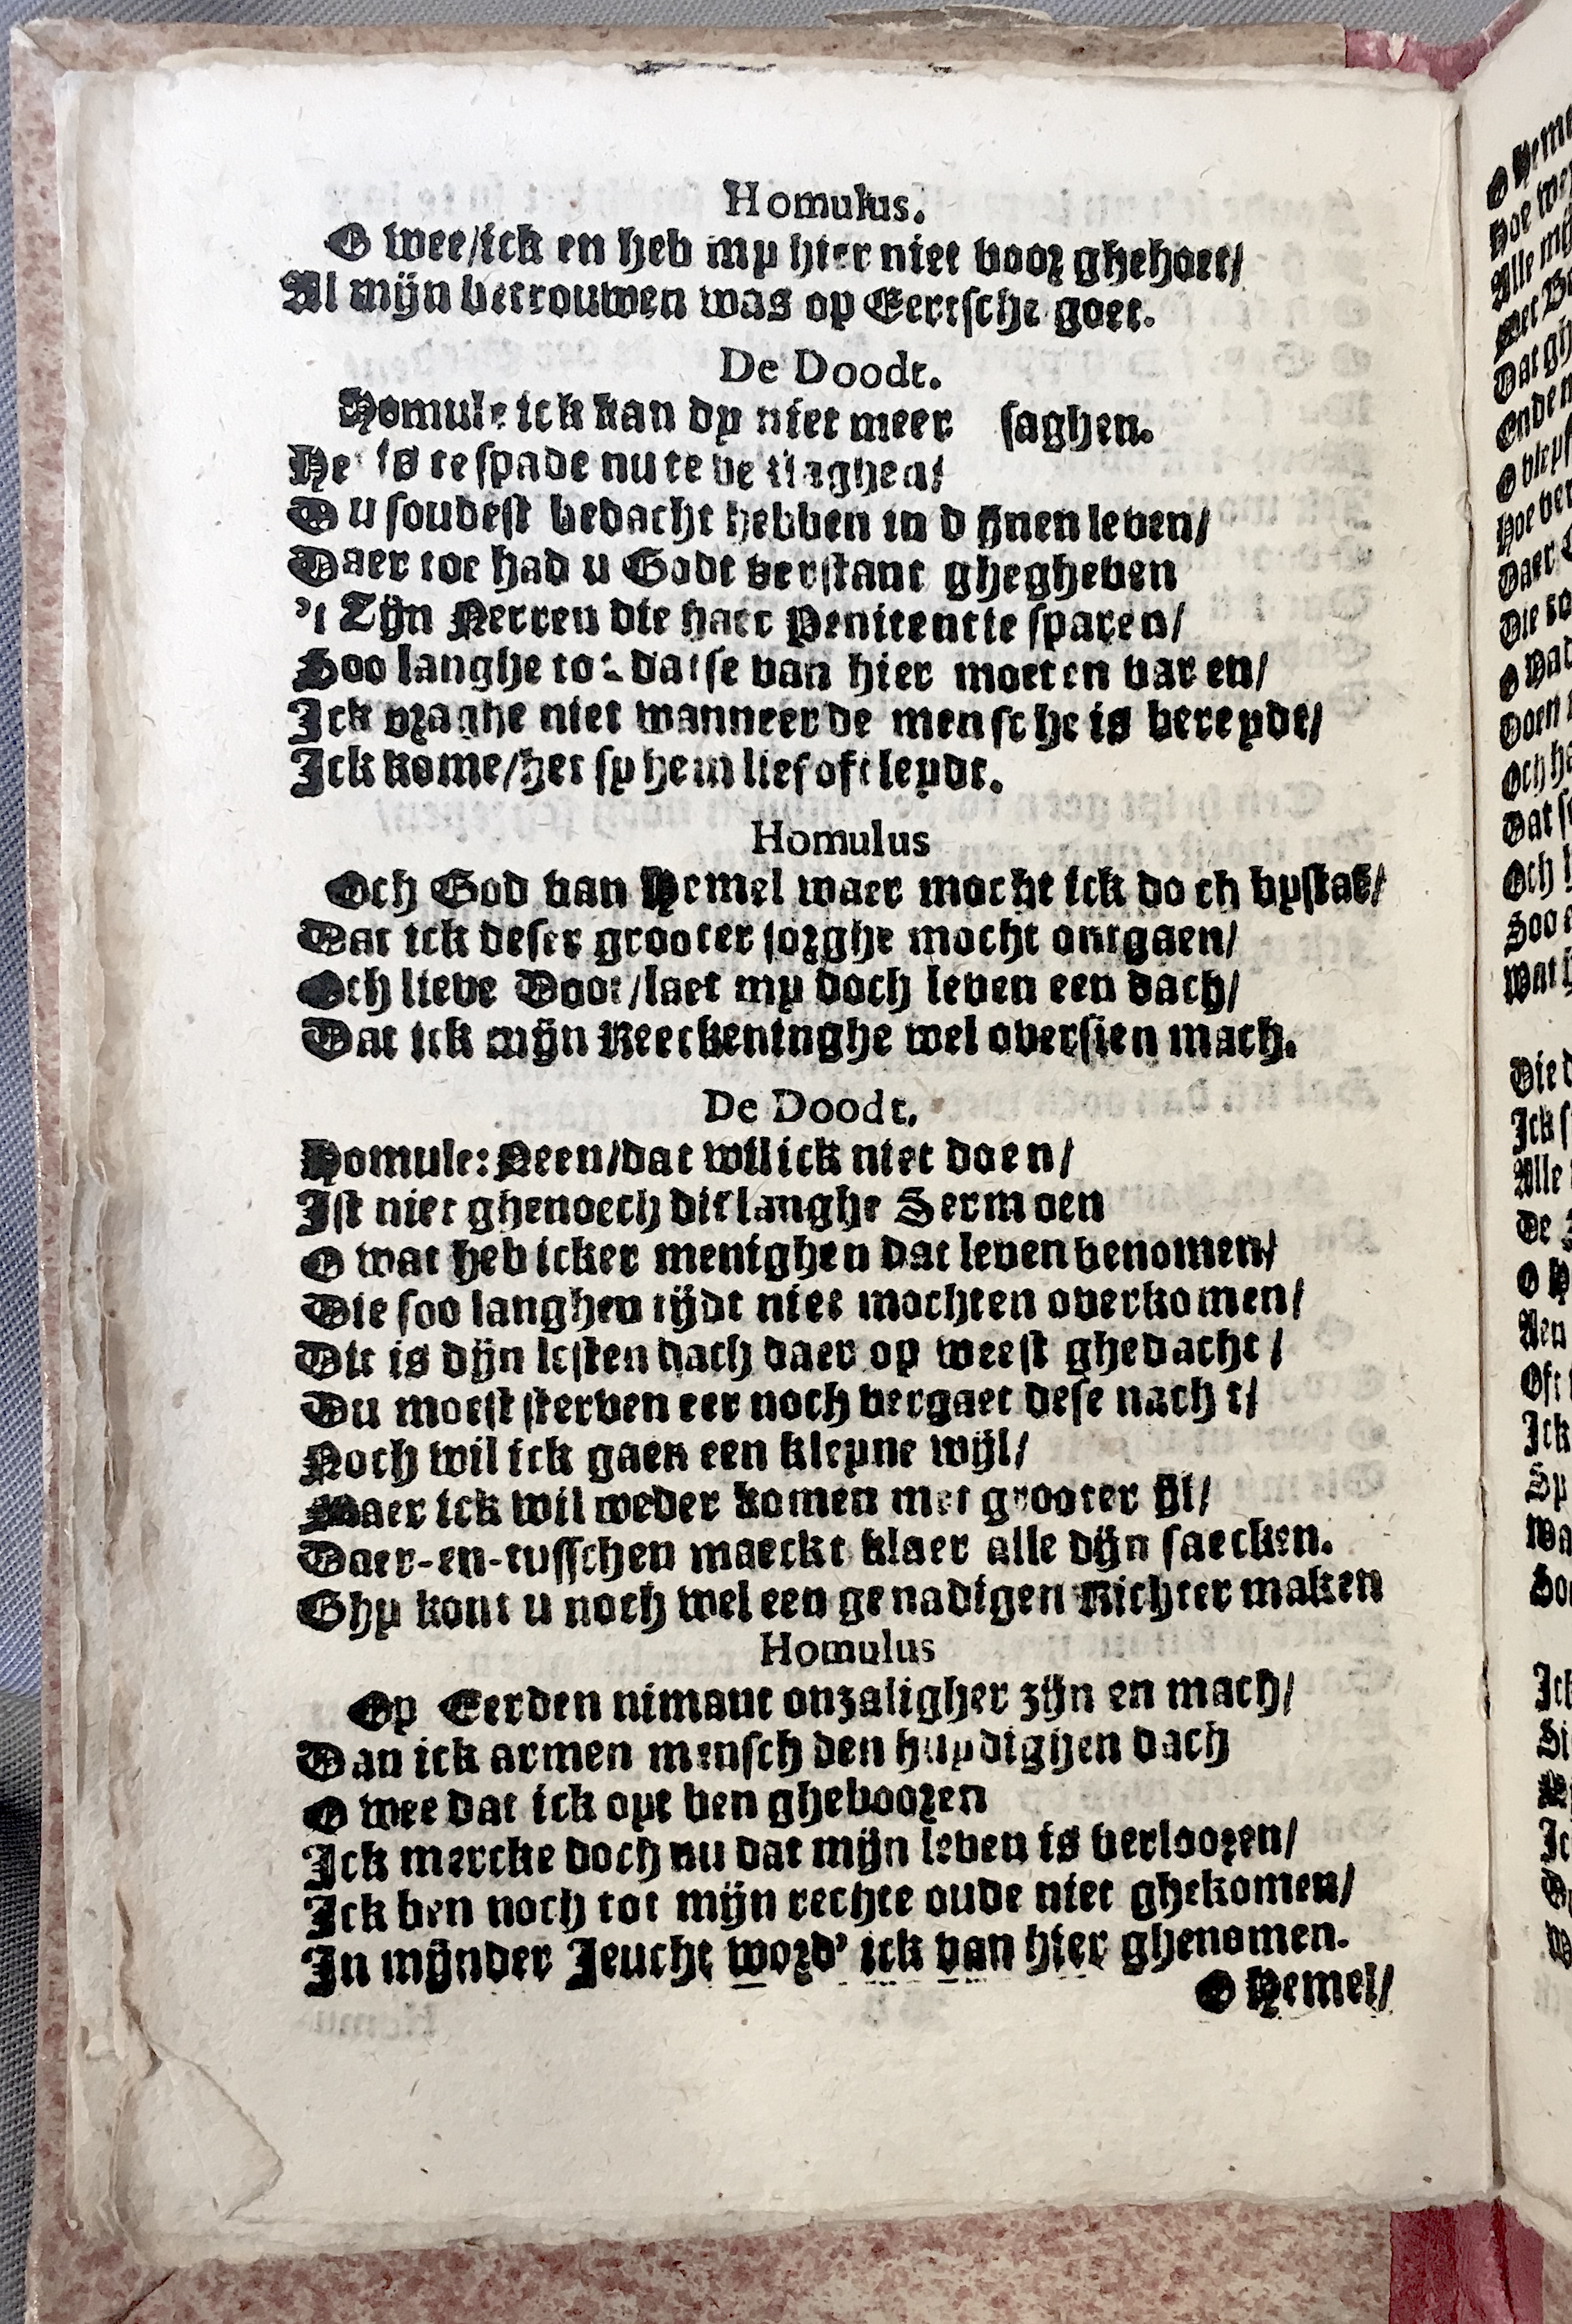 Homulus.
O wee/ick en heb my hier niet voor ghehoet/
Al mijn betrouwen was op Eertsche goet.
De Doodt.
Homule ick kan dy niet meer saghen.
Het is te spade nu te beklaghen/
Du soudest bedacht hebben in dijnen leven/
Daer toe had u Godt verstant ghegheven
't Zijn Nerren die haer Penitentie sparen/
Soo langhe tot datse van hier moeten varen/
Ick vraghe niet wanneer de mensche is bereydt/
Ick kome/het sy hem lief oft leydt.
Homulus
Och God van Hemel waer mocht ick doch bystaē/
Dat ick deser grooter sorghe mocht ontgaen/
Och lieve Doot/laet my doch leven een dach/
Dat ick mijn Reeckeninghe wel oversien mach.
De Doodt.
Homule: Neen/dat wil ick niet doen/
Ist niet ghenoech dit langhe Sermoen
O wat heb icker menighen dat leven benomen/
Die soo langhen tijdt niet mochten overkomen/
Dit is dijn lesten dach daer op weest ghedacht/
Du moest sterven eer noch vergaet dese nacht/
Noch wil ick gaen een kleyne wijl/
Maer ick wil weder komen met grooter ijl/
Daer-en-tusschen maeckt klaer alle dijn saecken.
Ghy kont u noch wel een genadigen Richter maken
Homulus
Op Eerden nimant onzaligher zijn en mach/
Dan ick armen mensch den huydighen dach
O wee dat ick oyt ben ghebooren
Ick mercke doch nu dat mijn leven is verlooren/
Ick ben noch tot mijn rechte oude niet ghekomen/
In mijnder Jeucht word' ick van hier ghenomen.
O Hemel/